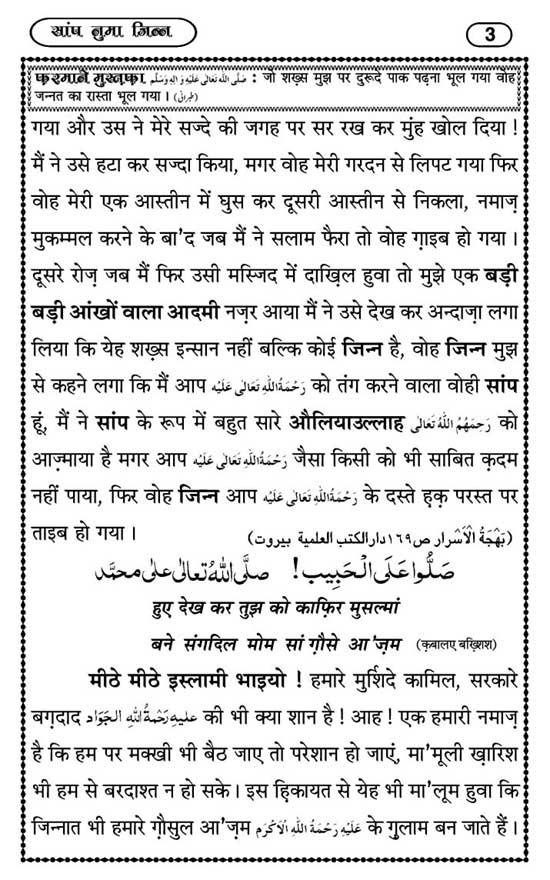 सांप नुमा जिन्न
3
फ़रमाने मुस्तफ़ा صَلَّى اللهُ تَعَالٰى عَلَيْهِ وَاٰلِهٖ وَسَلَّم : जो शख़्स मुझ पर दुरूदे पाक पढ़ना भूल गया वोह
जन्नत का रास्ता भूल गया । (طبرانی)
गया और उस ने मेरे सज्दे की जगह पर सर रख कर मुंह खोल दिया !
मैं ने उसे हटा कर सज्दा किया, मगर वोह मेरी गरदन से लिपट गया फिर
वोह मेरी एक आस्तीन में घुस कर दूसरी आस्तीन से निकला, नमाज़
मुकम्मल करने के बा'द जब मैं ने सलाम फैरा तो वोह ग़ाइब हो गया ।
दूसरे रोज़ जब मैं फिर उसी मस्जिद में दाख़िल हुवा तो मुझे एक बड़ी
बड़ी आंखों वाला आदमी नज़र आया मैं ने उसे देख कर अन्दाज़ा लगा
लिया कि येह शख़्स इन्सान नहीं बल्कि कोई जिन्न है, वोह जिन्न मुझ
से कहने लगा कि मैं आप رَحْمَةُ اللهِ تَعَالٰى عَلَيْه को तंग करने वाला वोही सांप
हूं, मैं ने सांप के रूप में बहुत सारे औलियाउल्लाह رَحِمَهُمُ اللهُ تَعَالٰى को
आज़्माया है मगर आप رَحْمَةُ اللهِ تَعَالٰى عَلَيْه जैसा किसी को भी साबित क़दम
नहीं पाया, फिर वोह जिन्न आप رَحْمَةُ اللهِ تَعَالٰى عَلَيْه के दस्ते हक़ परस्त पर
ताइब हो गया । (بَهْجَةُ الْاَسْرار ص١٦٩ دارالکتب العلمیة بیروت)
صَلُّوا عَلَى الْحَبِيب! صلَّى اللهُ تعالٰى علٰى محمَّد
हुए देख कर तुझ को काफ़िर मुसल्मां
बने संगदिल मोम सां ग़ौसे आ'ज़म (क़बालए बख़्शिश)
मीठे मीठे इस्लामी भाइयो ! हमारे मुर्शिदे कामिल, सरकारे
बग़दाद عليهِ رَحْمةُ اللهِ الْجَوَاد की भी क्या शान है ! आह ! एक हमारी नमाज़
है कि हम पर मक्खी भी बैठ जाए तो परेशान हो जाएं, मा'मूली ख़ारिश
भी हम से बरदाश्त न हो सके । इस हिकायत से येह भी मा'लूम हुवा कि
जिन्नात भी हमारे ग़ौसुल आ'ज़म عَلَيْهِ رَحْمَةُ اللهِ الْاَكْرَم के ग़ुलाम बन जाते हैं ।